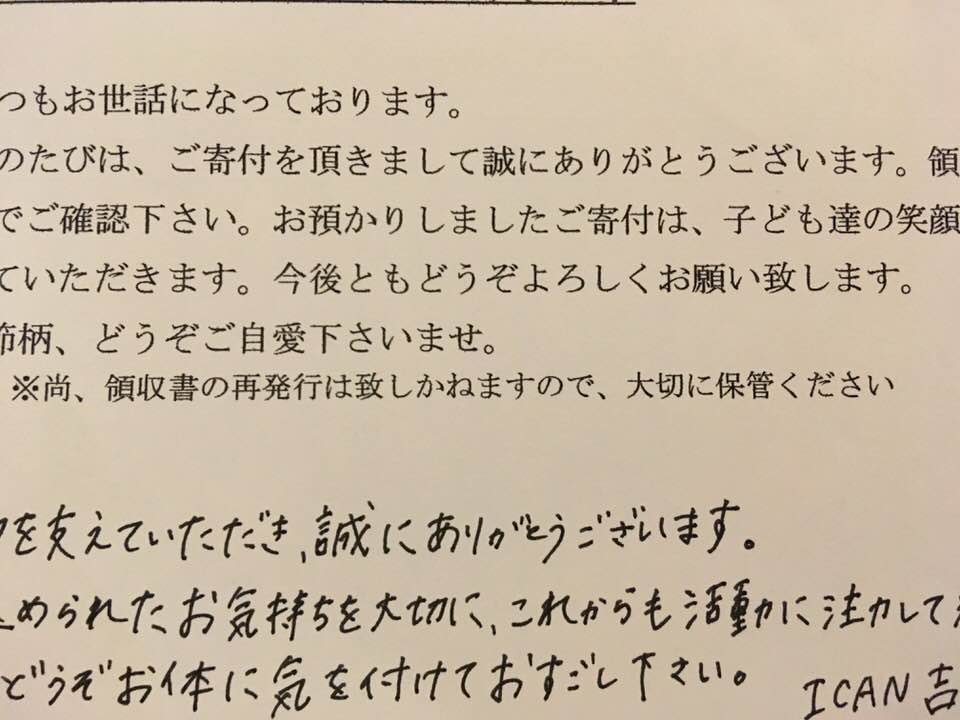 つもお世話になっております。
のたびは、ご寄付を頂きまして誠にありがとうございます。領
でご確認下さい。お預かりしましたご寄付は、子ども達の笑顔
ていただきます。今後ともどうぞよろしくお願い致します。
節柄、どうぞご自愛下さいませ。
※尚、領収書の再発行は致しかねますので、大切に保管ください
を支えていただき、誠にありがとうございます。
込められたお気持ちを大切に、これからも活動に注力して
どうぞお体に気を付けておすごし下さい。 ICAN 吉